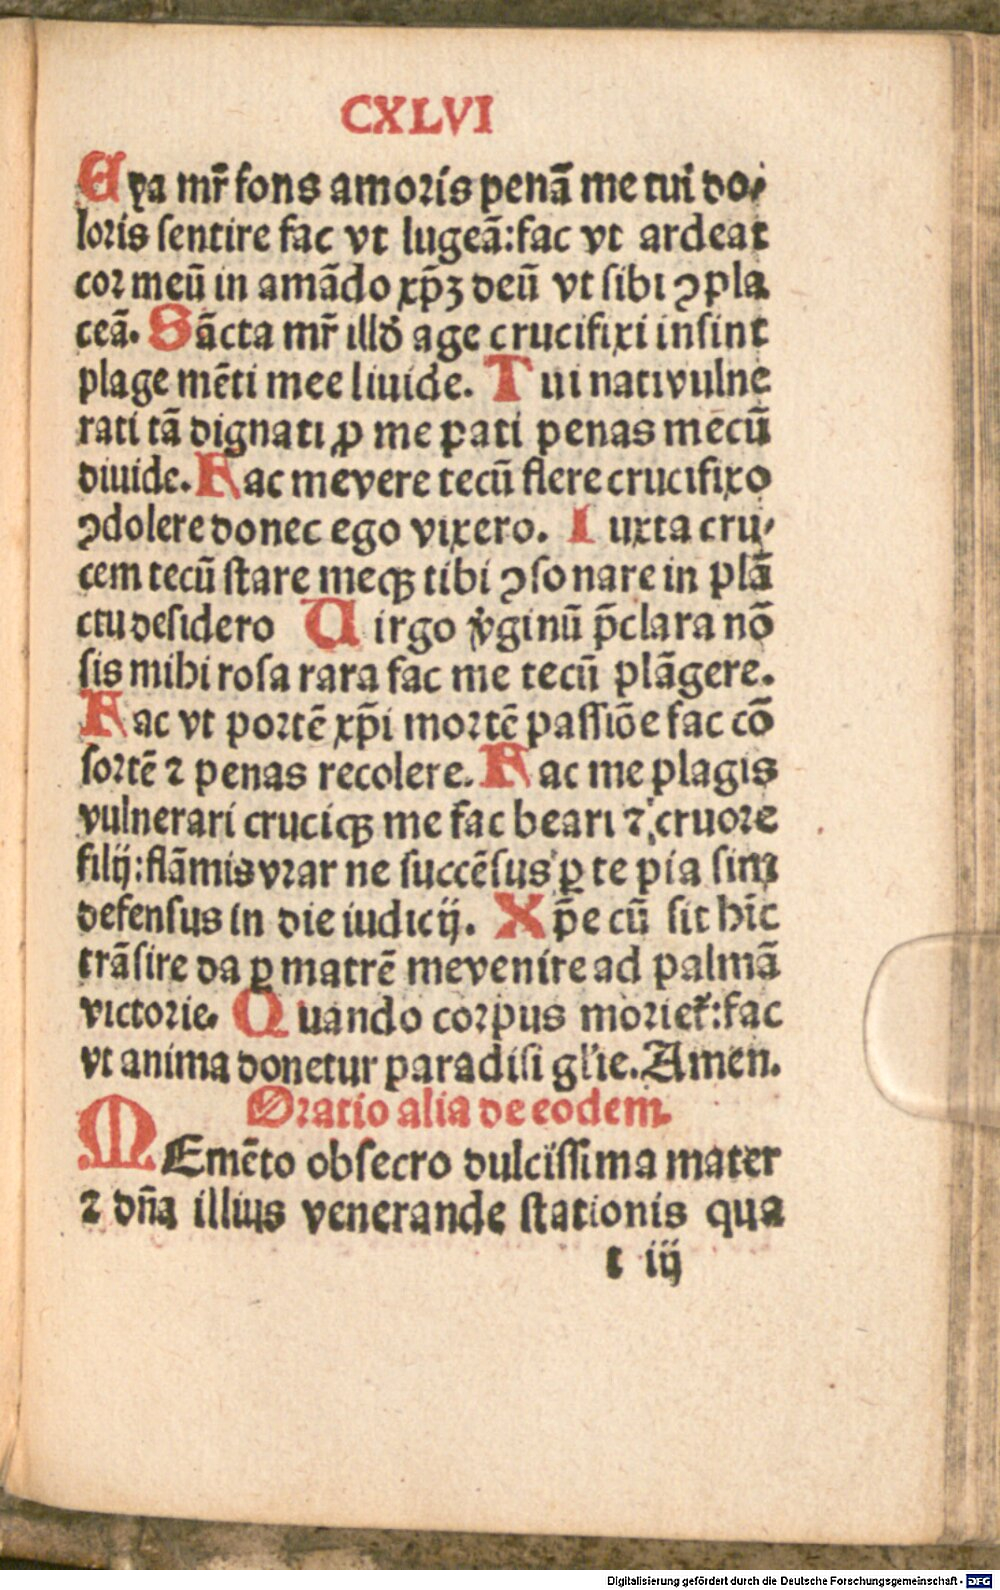 CXLVI
Eya mr̃ fons amoris penã me tui do⸗
loris sentire fac vt lugeã: fac vt ardeat
cor meũ in amãdo xp̃ꝫ deũ vt sibi ↄpla
ceã. Sãcta mr̃ illđ age crucifixi insint
plage mẽti mee liuide. Tui nati vulne
rati tã dignati ꝓ me pati penas mecũ
diuide. Fac me vere tecũ flere crucifixo
ↄdolere donec ego vixero. Iuxta cru⸗
cem tecũ stare meqꝫ tibi ↄsonare in plã
ctu desidero Uirgo v̾ginũ p̃clara nõ
sis mihi rosa rara fac me tecũ plãgere.
Fac vt portẽ xp̃i mortẽ passiõe fac cõ
sortẽ ⁊ penas recolere. Fac me plagis
vulnerari cruciqꝫ me fac beari ⁊ cruore
filij: flãmis vrar ne succẽsus ꝑ te pia sim
defensus in die iudicij. Xp̃e cũ sit hĩc
trãsire da ꝑ matrẽ me venire ad palmã
victorie. Quando corpus moriet᷑: fac
vt anima donetur paradisi gl'ie. Amen.
Oratio alia de eodem.
MEmẽto obsecro dulcissima mater
⁊ dña illius venerande stationis qua
t iij
Digitalisierung gefördert durch die Deutsche Forschungsgemeinschaft - DFG